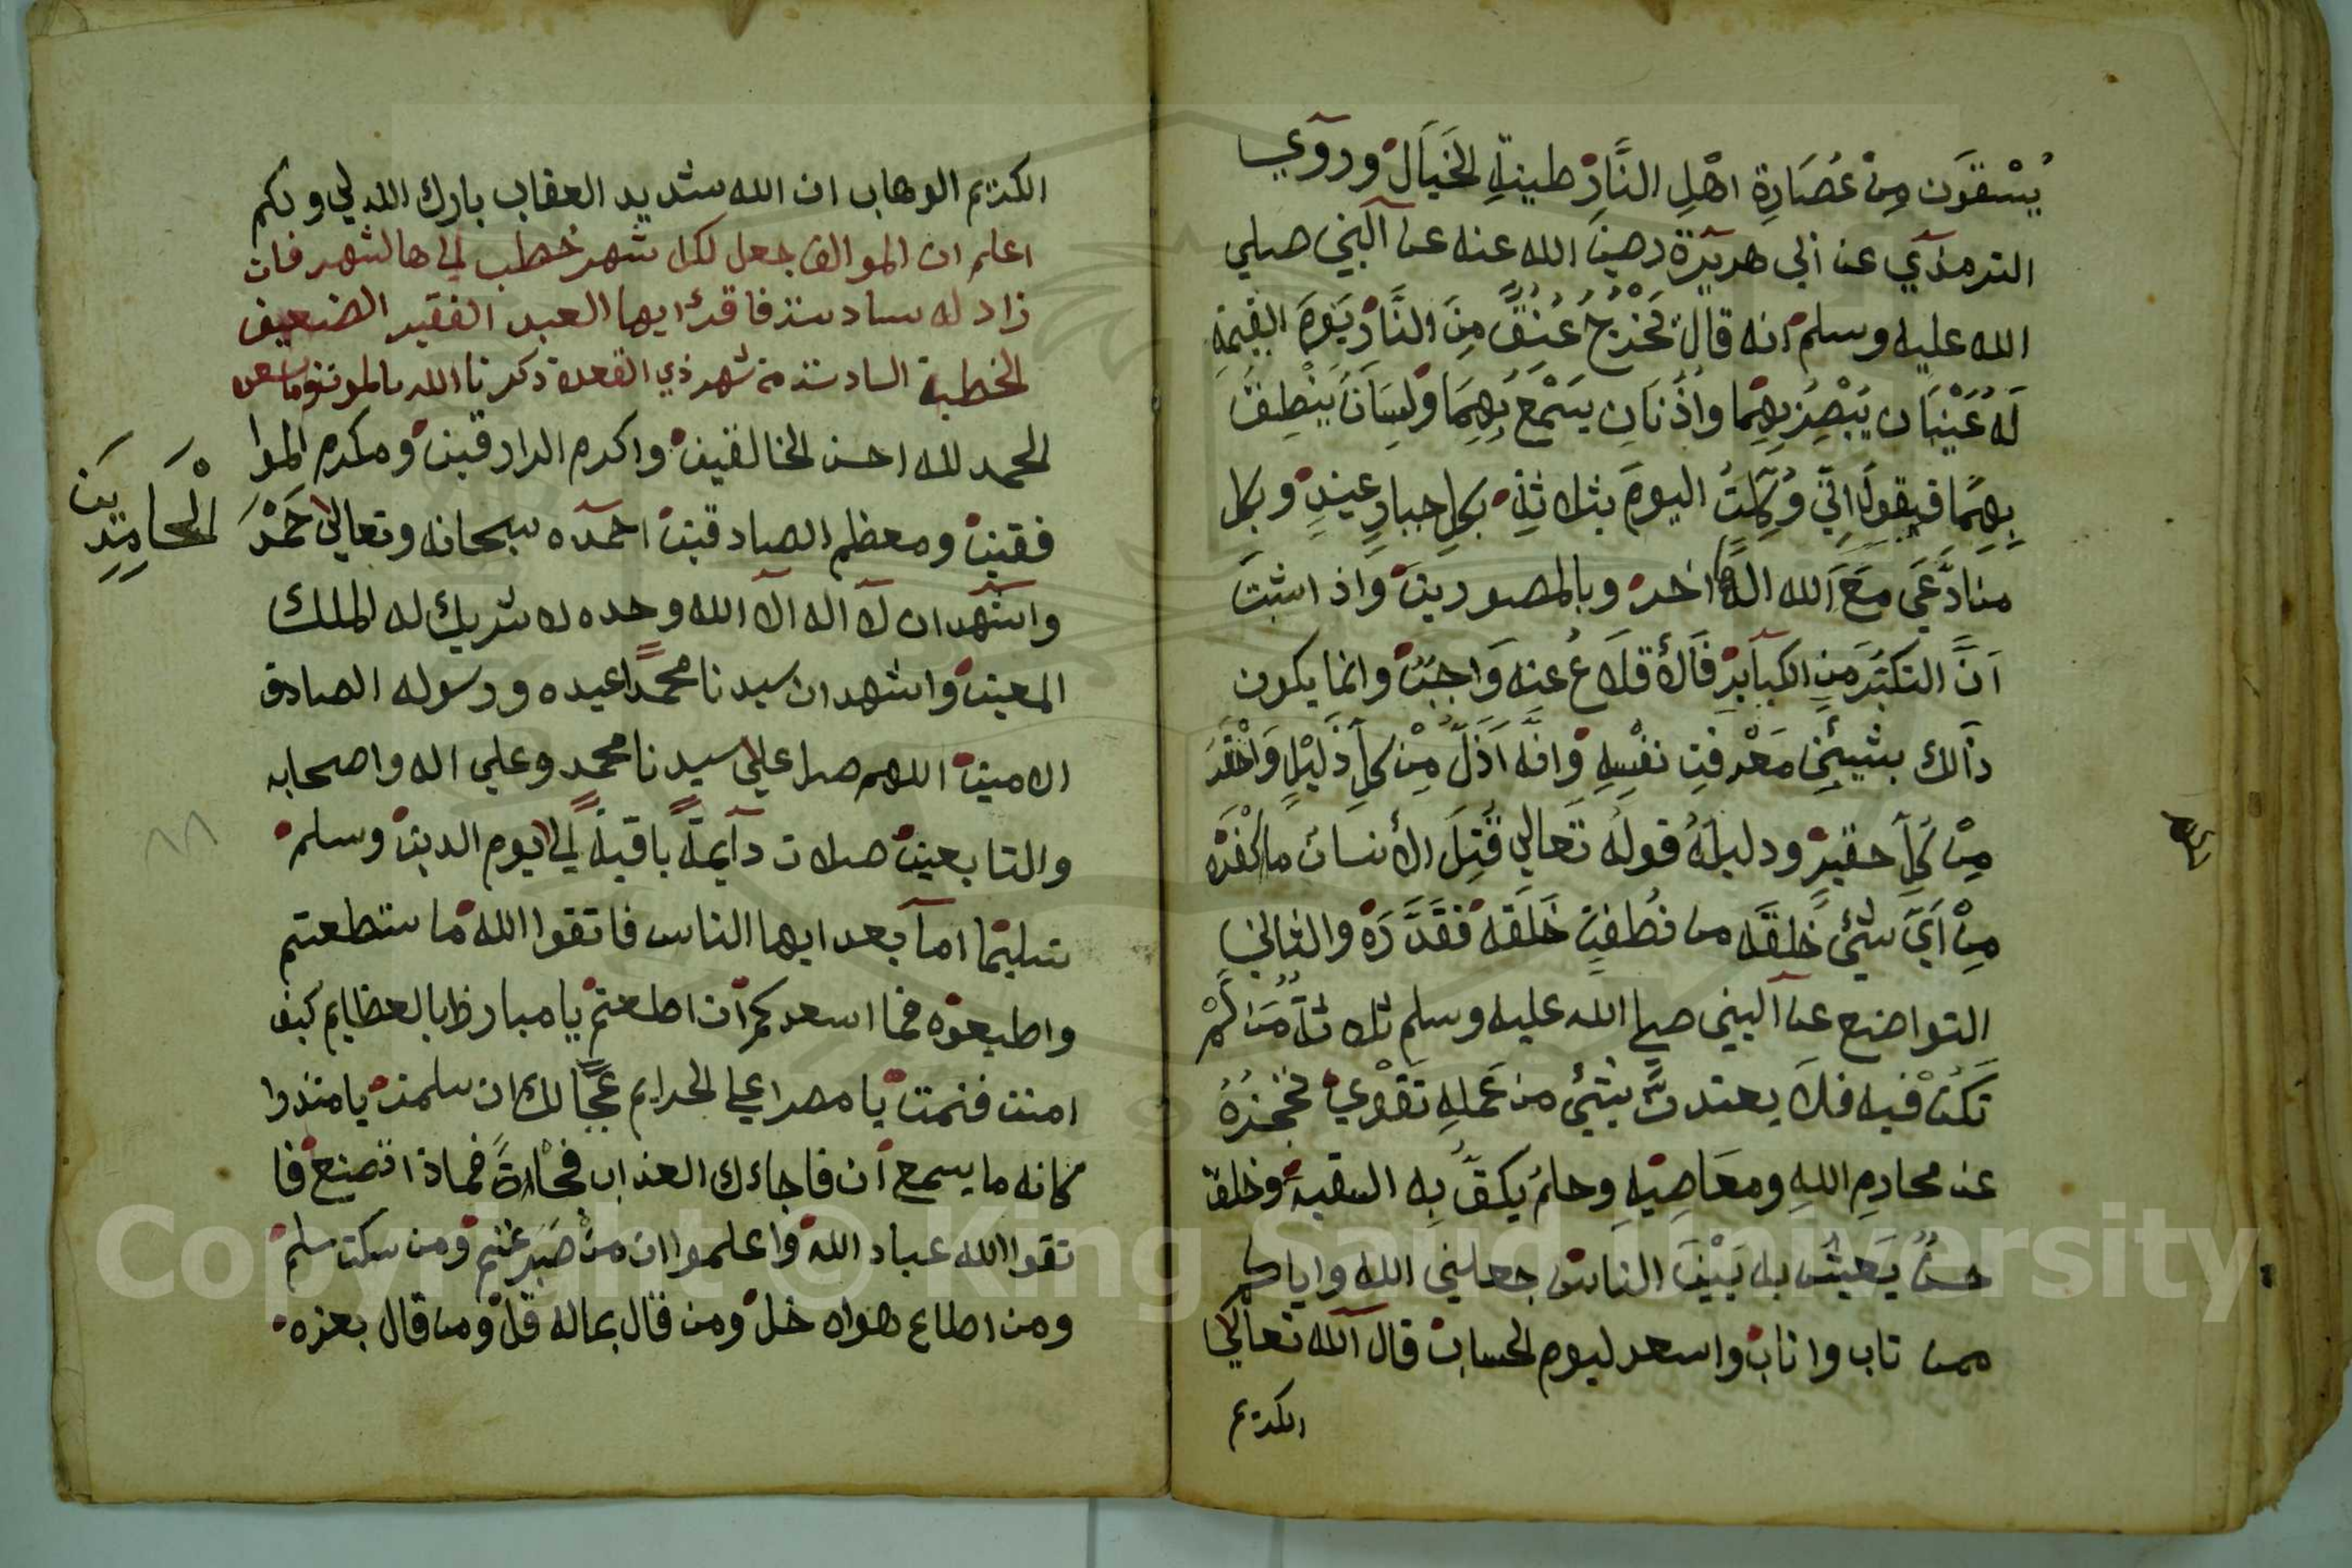 يُسْقَون مِنْ عُصَارِةِ اهْلِ النَّارْ طينةِ الخَيَالْ وروَي
الترمذي عن ابي هريرة رضي الله عنه عن النبي صلي
الله عليه وسلم انه قال تخرج عُنُقٌ مِنَ النَّارْ يَومَ القيمة
لَهُ عَيْنَان يُبْصِرُ بِهِمَا واذنانِ يَسْمَعُ بِهِمَا ولِسَانٌ يَنْطِقُ
بِهِمَا فيقولُ اِنّي وُكِّلتُ اليومَ بثلاثةٍ بكلِ جبارٍ عنيدٍ وبكل
منادَّعَي مَعَ الله الهً اخر وبالمصورينَ واذ اثبتَ
اَنَّ التكبُّرَ مَنِ الكبايرْ فَالأقلَاعُ عنه وَاجبٌ وانما يكون
ذالك بشيئين مَعْرفتِ نفْسِهِ وانَّه اَذَلّ مِنْ كلِ ذَليْلٍ وَاحْقَرَ
مِنْ كُلِ حقيرْ ودليلهُ قولهُ تَعالي قُتِلَ الأنسان ما اكْفَرَه
مِنْ اَيِّ شَئٍ خلقَه من نُطفتٍ خَلَقَهُ فَقَدَّرَهْ والثاني
التواضع عن النبي صلي الله عليه وسلم ثلاثةٌ مَنْ لَمْ
تَكُنْ فيه فلَا يعتدنَّ بشَئٍ من عَملِهِ تَقْوَي تحْجزهُ
عن محارمِ اللهِ ومعَاصِيْهِ وحلمٌ يكفُّ بِه السفيهَ وخلقٌ
حسنٌ يَعيشُ به بَيْنَ الناسْ جعلني الله واياكم
ممن تاب وانابْ واسعد ليوم الحسابْ قال الله تعالي
الكريم
الكريم الوهاب ان الله شديد العقاب بارك الله لي ولكم
اعلم ان الموالف جعل لكل شهر خطب الي هالشهر فان
زاد له سادسة فاقرا ايها العبد الفقير الضعيف
الخطبة السادسة من شهر ذي القعدة ذكرنا الله بالموت
الحمد لله احسن الخالقينْ واكرم الرازقينْ ومكرم الموا
فقينْ ومعظم الصادقينْ احمده سبحانه وتعالي حَمْدَ
الْحَامِدِيَن
واشهد ان لآ اله الا الله وحده لا شريك له الملك
المعينْ واشهد ان سيدنا محمداً عبده ورسوله الصادق
الامينْ اللهم صل علي سيدنا محمد وعلي اله واصحابه
والتابعينْ صلات دآيمةً باقيةً الي يوم الدينْ وسلمْ
تسليمًا اما بعد ايها الناس فاتقوا اللهْ ما ستطعتم
واطيعوْه فما اسعدكم ان اطعتم يا مبارظ بالعظايم كيف
امنت فنمت يا مصر علي الحرايم عجبًا لك ان سلمتْ يا منذرا
كانه ما يسمع ان فاجاءك العذاب فجاءةً فماذا تصنع فا
تقوا الله عباد اللهْ واعلموا ان منْ صَبَر غنم ومن سكت سلمْ
ومن اطاع هواه خلْ ومن قال بماله قلْ ومن قال بعزه